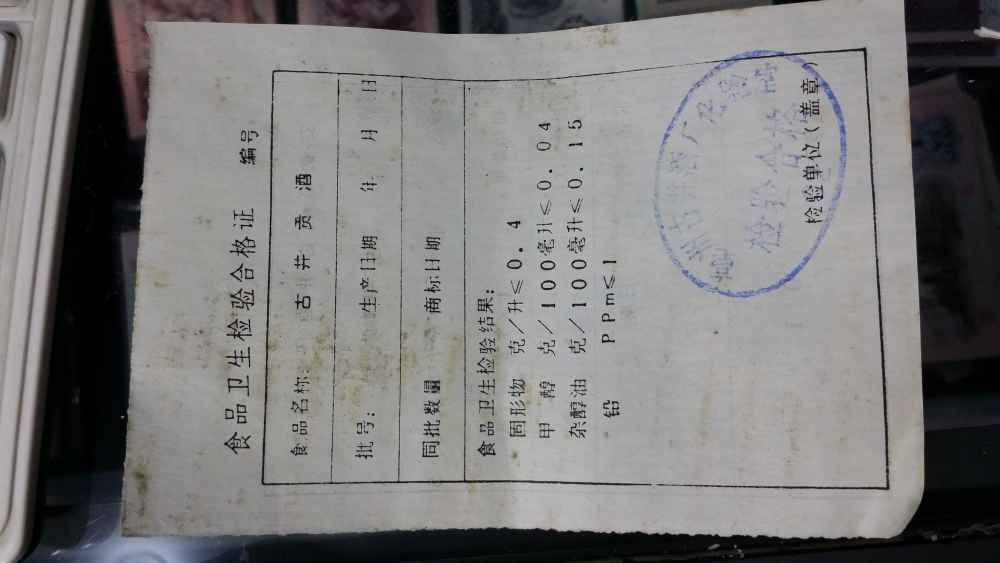 食品卫生检验合格证
编号
食品名称: 古井贡酒
批号: 生产日期 年 月 日
同批数量 商标日期
食品卫生检验结果:
固形物 克/升≤0.4
甲醇 克/100毫升≤0.04
杂醇油 克/100毫升≤0.15
铅 PPm≤1
检验合格
检验单位(盖章)